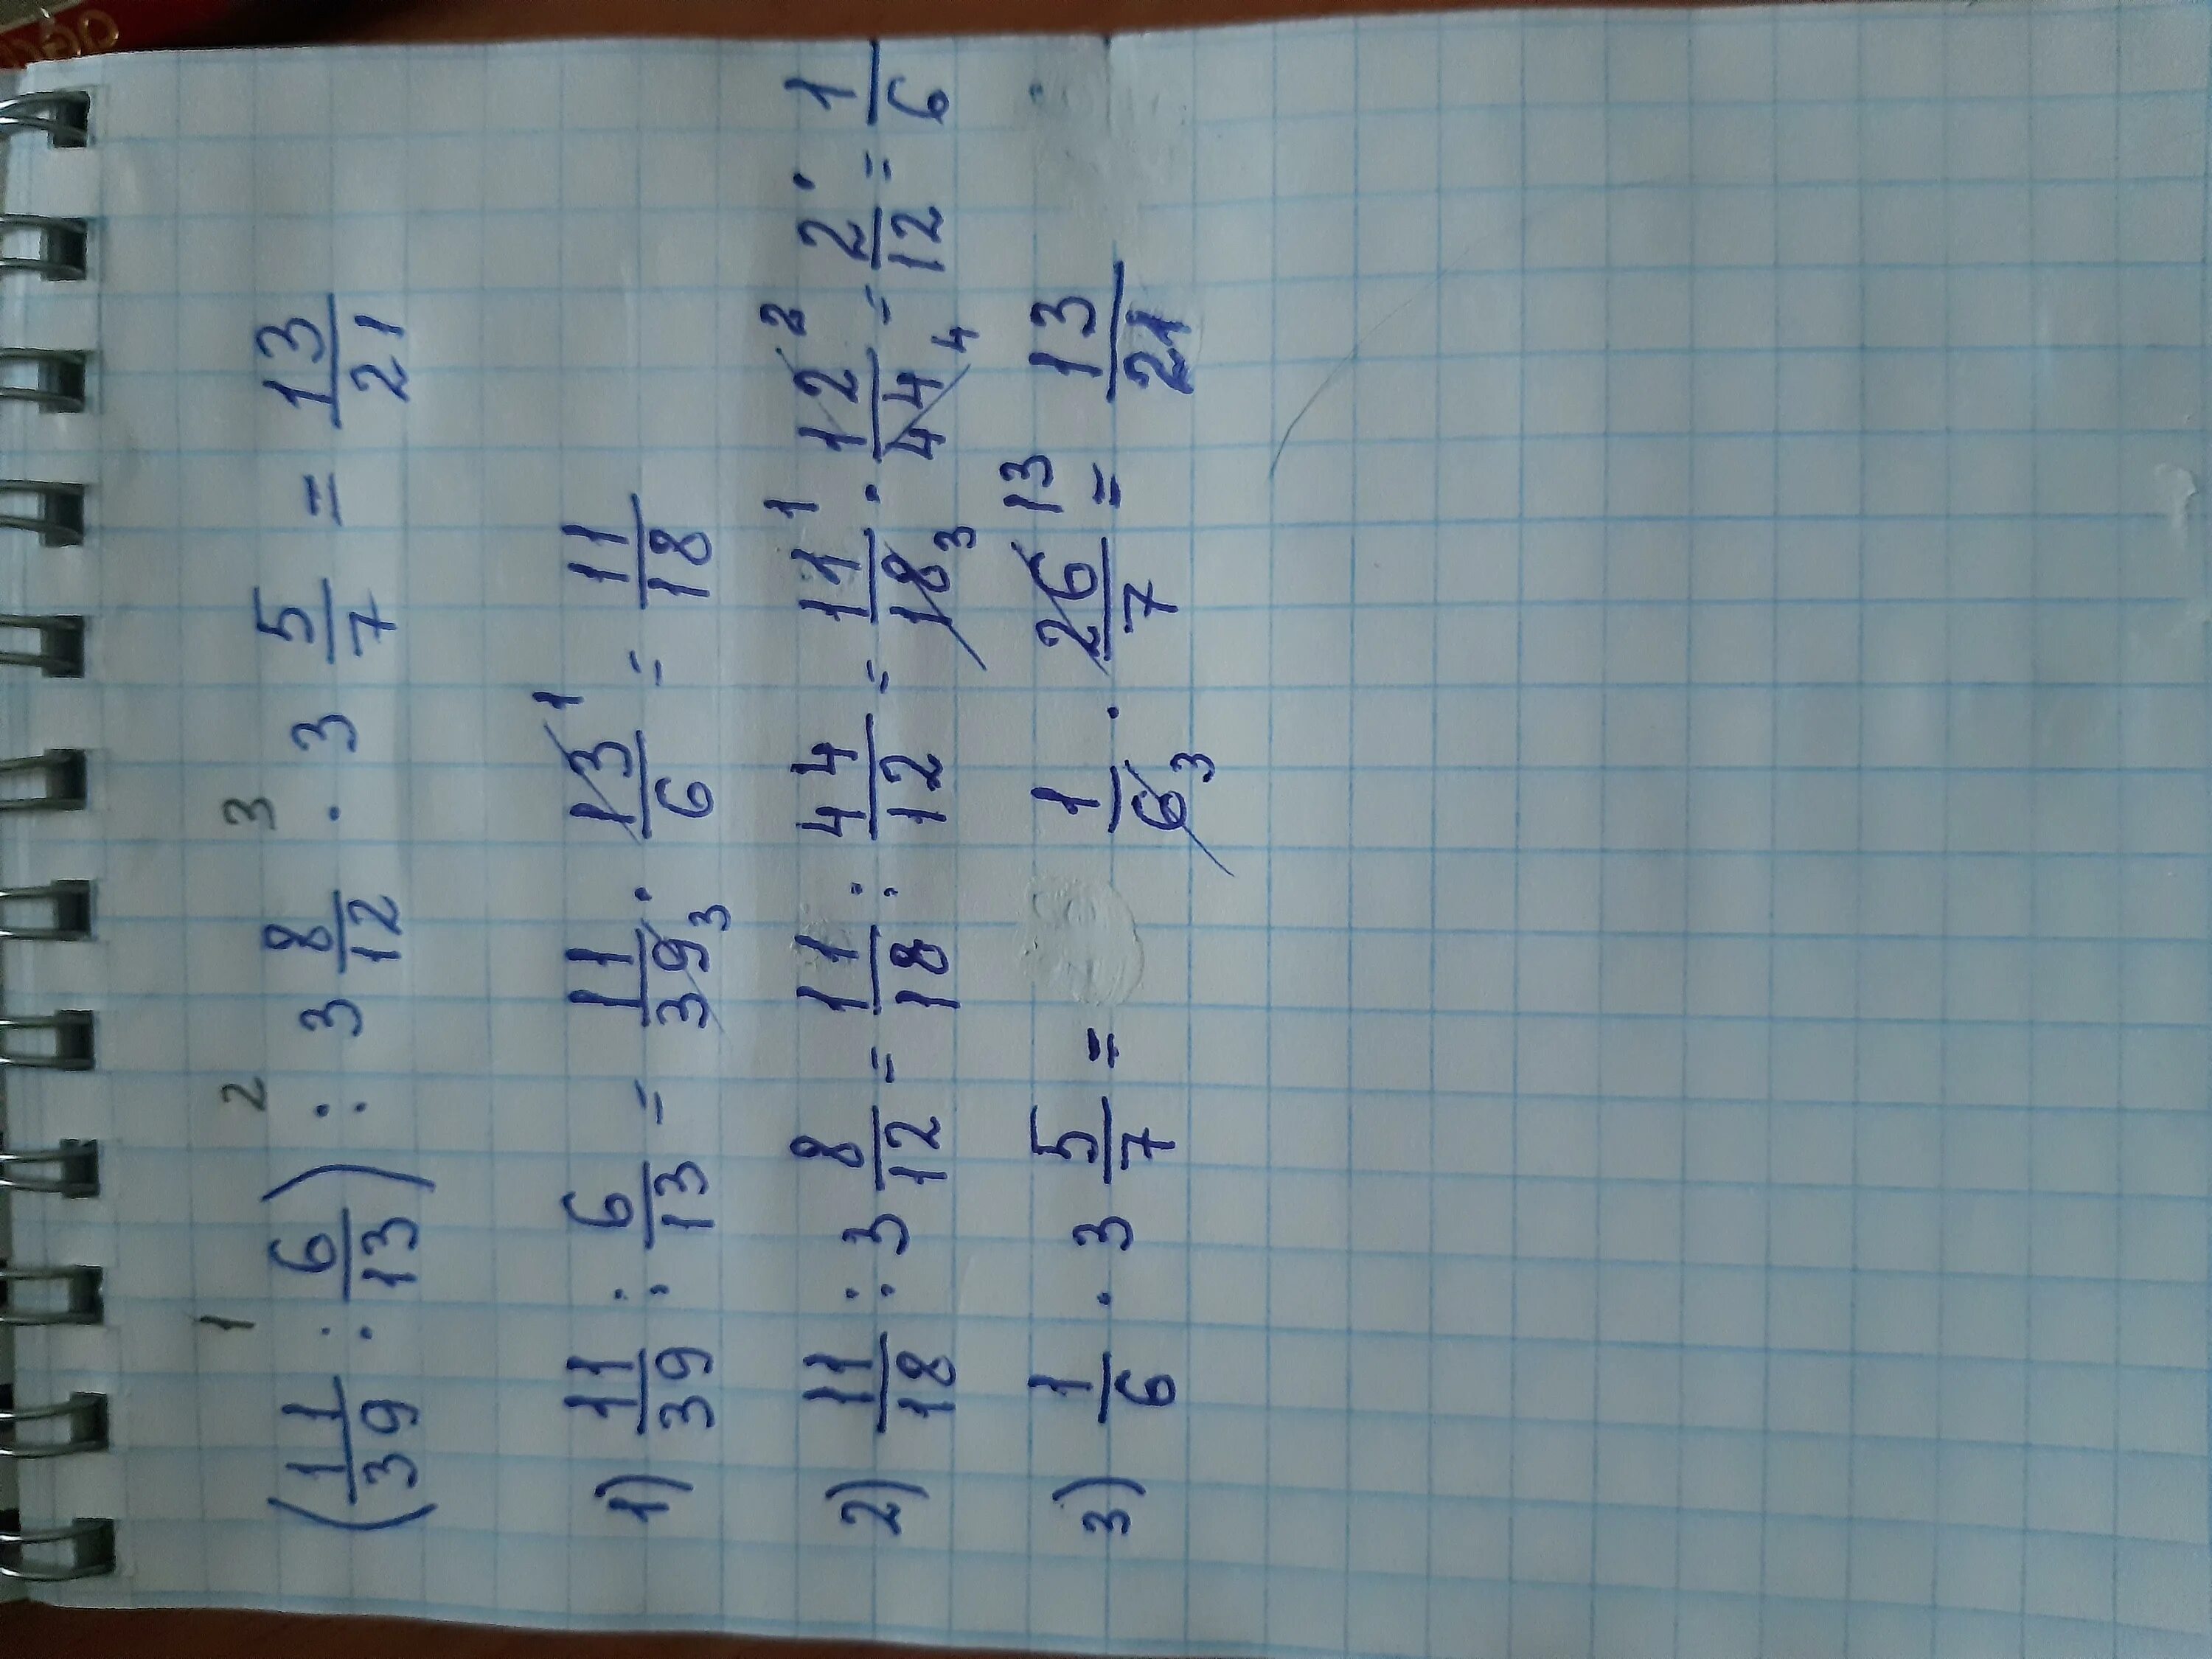 1 2 3
(11/39 : 6/13) : 3 8/12 · 3 5/7 = 13/21
1) 11/39 : 6/13 = 11/39 3 · 13/6 1 = 11/18
2) 11/18 : 3 8/12 = 11/18 : 44/12 = 11/18 1 3 · 12/44 2 4 = 2/12 = 1/6
3) 1/6 · 3 5/7 = 1/6 3 · 26/7 13 = 13/21